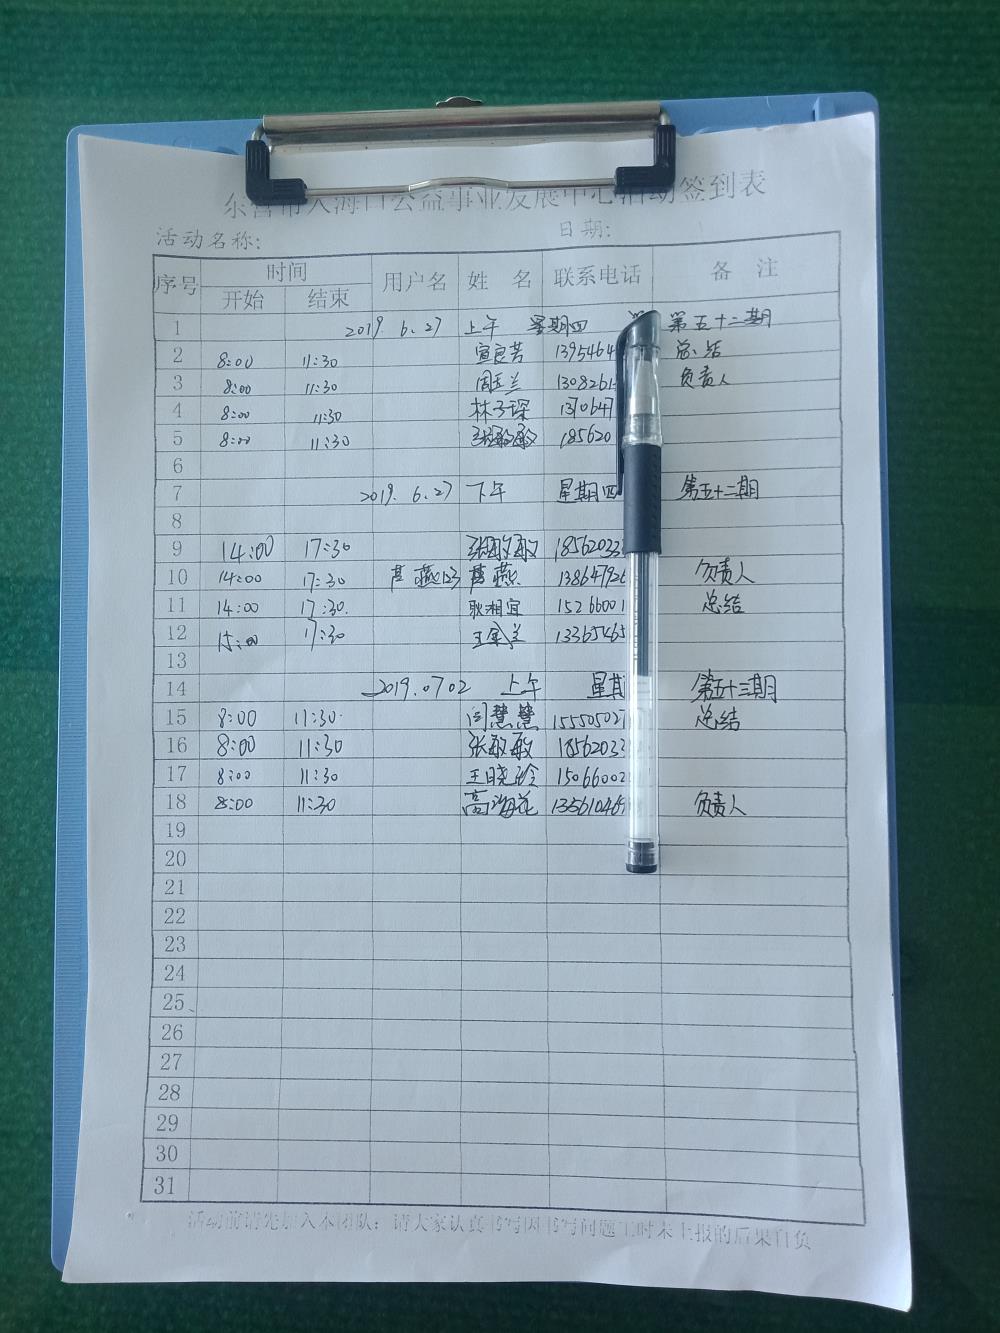 东营市入海口公益事业发展中心活动签到表
活动名称: 日期:
序号 时间 用户名 姓 名 联系电话 备 注
开始 结束
1 2019. 6. 27 上午 星期四 第五十二期
2 8:00 11:30 宣良芳 1395464 总结
3 8:00 11:30 周玉兰 130826 负责人
4 8:00 11:30 林子琛 1370647
5 8:00 11:30 张敏敏 185620
6
7 2019. 6. 27 下午 星期四 第五十二期
8
9 14:00 17:30 张敏敏 18562033
10 14:00 17:30 燕123 燕 138647926 负责人
11 14:00 17:30. 耿相宜 15266001 总结
12 15:00 17:30 王金兰 13365465
13
14 2019.07.02 上午 星期 第五十三期
15 8:00 11:30 闫慧慧 155505027 总结
16 8:00 11:30 张敏敏 18562033
17 8:00 11:30 王晓玲 15066002
18 8:00 11:30 高海花 135610469 负责人
19
20
21
22
23
24
25
26
27
28
29
30
31
活动前请先加入本团队；请大家认真书写因书写问题工时未上报的后果自负